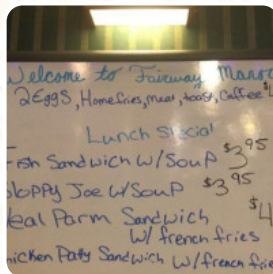 Welcome to Fairway Manor
2 Eggs, Homefries, meat, toast, Coffee $
Lunch Special
Fish Sandwich W/Soup $3.95
Sloppy Joe W/Soup $3.95
Veal Parm Sandwich $4
W/ french fries
Chicken Patty Sandwich W/french fries